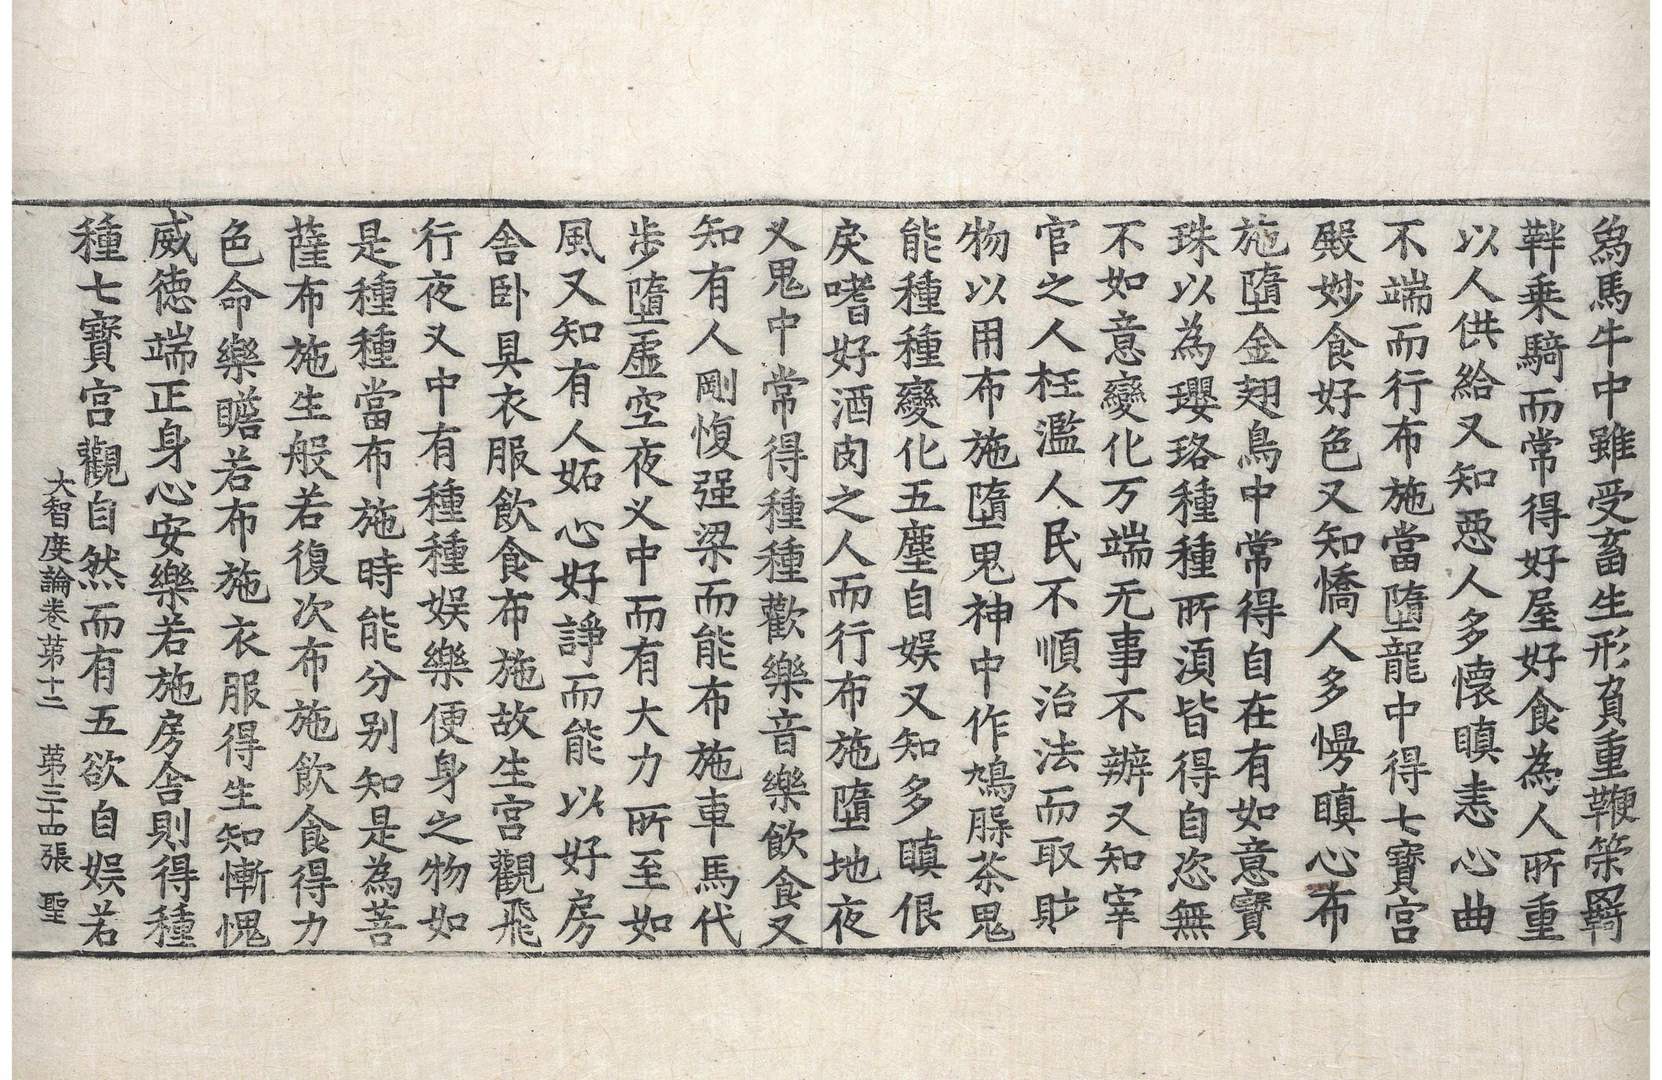 爲馬牛中雖受畜生形負重鞭策羇
靽乗騎而常得好屋好食為人所重
以人供給又知惡人多懷瞋恚心曲
不端而行布施當墮龍中得七寳宮
殿妙食好色又知憍人多慢瞋心布
施墮金翅鳥中常得自在有如意寳
珠以為瓔珞種種所湏皆得自恣無
不如意變化万端无事不辦又知宰
官之人枉濫人民不順治法而取財
物以用布施墮鬼神中作鳩膓茶鬼
能種種變化五塵自娛又知多瞋佷
戾嗜好酒肉之人而行布施墮地夜
叉鬼中常得種種歡樂音樂飲食又
知有人剛愎强梁而能布施車馬代
步墮虛空夜叉中而有大力所至如
風又知有人妬心好諍而能以好房
舎卧具衣服飲食布施故生宮觀飛
行夜叉中有種種娛樂便身之物如
是種種當布施時能分别知是為菩
薩布施生般若復次布施飲食得力
色命樂瞻若布施衣服得生知慚愧
威德端正身心安樂若施房舎則得種
種七寳宮觀自然而有五欲自娛若
大智度論卷苐十二　苐三十四張　聖